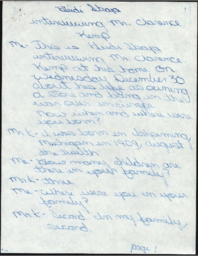 Heidi Sharp
interviewing Mr. Clarence
Kemp
Me - This is Heidi Sharp
interviewing Mr. Clarence
Kemp at his home on
Wednesday December 30
about his life as owning
a store and being on the
Now when and where were
you born
Mr. K - I was born in Ishpeming,
Michigan in 1909, August
the
Me - How many children are
there in your family?
Mr. K - three
Me - Where were you in your
family?
Mr. K - Second. In my family,
second
page 1